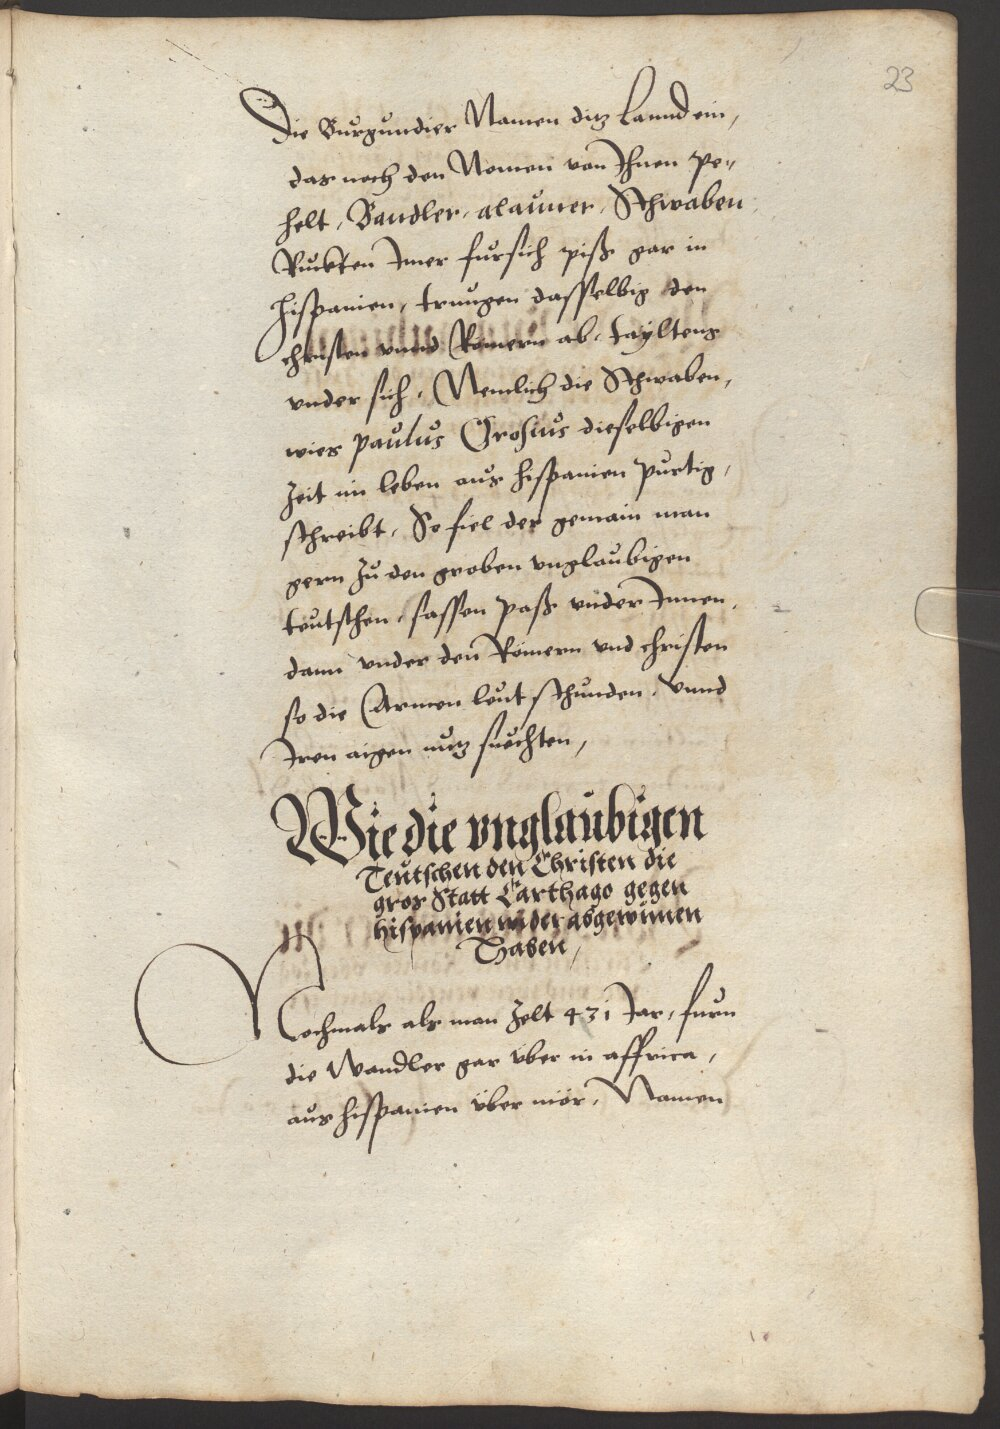 23
Die Burgundier Namen ditz Lannd ein,
das noch den Nomen von Ihnen pe„
helt, Vandler, alauner, Schwaben
Ruckten Imer fursich piß gar in
hispanien, trungen dasselbig den
christen vnnd Romern ab, tayltens
vnder sich, Nemlich die Schwaben,
wies paulus Orosius dieselbigen
Zeit im leben aus hispanien purtig,
schreibt, So fiel der gemain man
gern Zu den groben vnglaubigen
teutschen, sassen paß vnder Innen,
dann vnder den Römern vnd christen
so die Armen leut schunden, vnnd
Iren aigen nutz suechten,
Wie die vnglaubigen
Teutschen den Christen die
gros Statt Carthago gegen
hispanien wider abgewunen
Haben,
Nochmals als man Zelt 431 Jar, furn
die Wandler gar vber in affrica,
aus hispanien vber mör, Namen